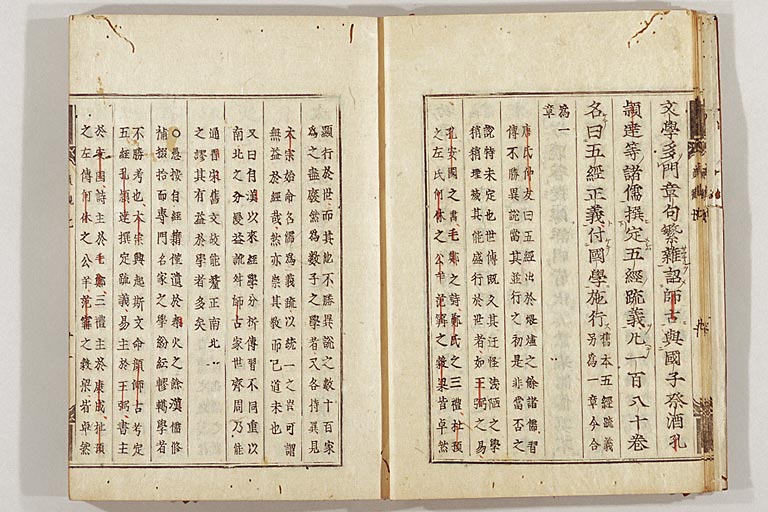 文學多門章句繁雜詔師古與國子祭酒孔
穎達等諸儒撰定五經疏義凡一百八十卷
名曰五經正義付國學施行舊本五經疏義
另爲一章今合
爲一
章
唐氏仲友曰五經出於煨燼之餘諸儒習
傳不勝異說當其並行之初是非當否之
說特未定也世傳旣久其迂怪淺陋之學
稍稍堙廢其能盛行於世者如王弼之易
孔安國之書毛鄭之詩鄭氏之三禮杜預
之左氏何休之公羊范甯之穀梁皆卓然
顯行於世而其他不勝異說之數十百家
爲之盡廢然爲數子之學者又各持異見
無益於經哉然亦崇其敎而已道未也
太宗始命名儒爲義疏以統一之豈可謂
又曰自漢以來經學分析傳習不同重以
南北之分最益訛舛師古家世齊周乃能
通晉宋舊文故能釐正南北
之謬其有益於學者多矣
○愚按自經籍僅遺於秦火之餘漢儒修
補掇拾而專門名家之學紛紜轇轕學者
不勝考也太宗興起斯文命顔師古考定
五經孔穎達撰定疏義易主於王弼書主
於安國詩主於毛鄭三禮主於康成杜預
之左傳何休之公羊范甯之穀梁皆卓然